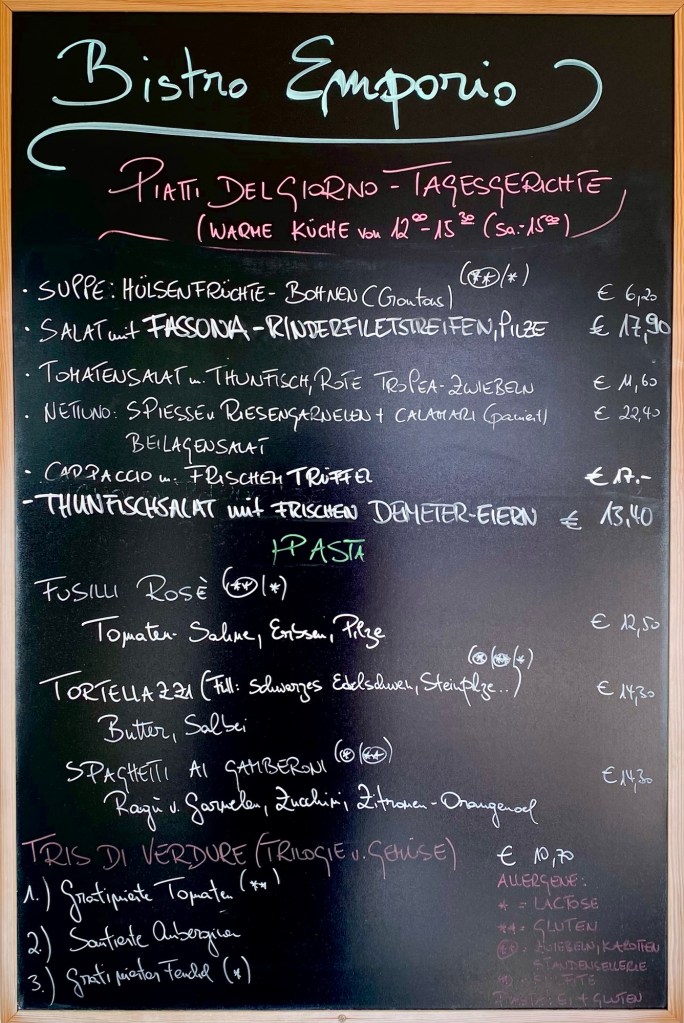 Bistro Emporio
PIATTI DEL GIORNO - TAGESGERICHTE
(WARME KÜCHE von 12⁰⁰-15³⁰ (Sa.-15⁰⁰)
· SUPPE: HÜLSENFRÜCHTE - BOHNEN (Croutons) (**/*) € 6,20
· SALAT mit FASSONA-RINDERFILETSTREIFEN, PILZE € 17,90
· TOMATENSALAT m. THUNFISCH, ROTE TROPEA-ZWIEBELN € 11,60
· NETTUNO: SPIESSE v. RIESENGARNELEN + CALAMARI (paniert) € 22,40
BEILAGENSALAT
· CARPACCIO m. FRISCHEM TRÜFFEL € 17.-
- THUNFISCHSALAT mit FRISCHEN DEMETER-EIERN € 13,40
PASTA
FUSILLI ROSÈ (**/*)
Tomaten-Sahne, Erbsen, Pilze € 12,50
TORTELLAZZI (Füll: Schwarzes Edelschwein, Steinpilze..) € 14,30
Butter, Salbei
SPAGHETTI AI GAMBERONI € 14,30
Ragù v. Garnelen, Zucchini, Zitronen-Orangenoel
TRIS DI VERDURE (TRILOGIE v. GEMÜSE) € 10,70
1.) Gratinierte Tomaten (**)
2.) Sautierte Auberginen
3.) Gratinierter Fenchel (*)
ALLERGENE:
* = LACTOSE
** = GLUTEN
ZWIEBELN, KAROTTEN
STANDENSELLERIE
PASTA: EI + GLUTEN